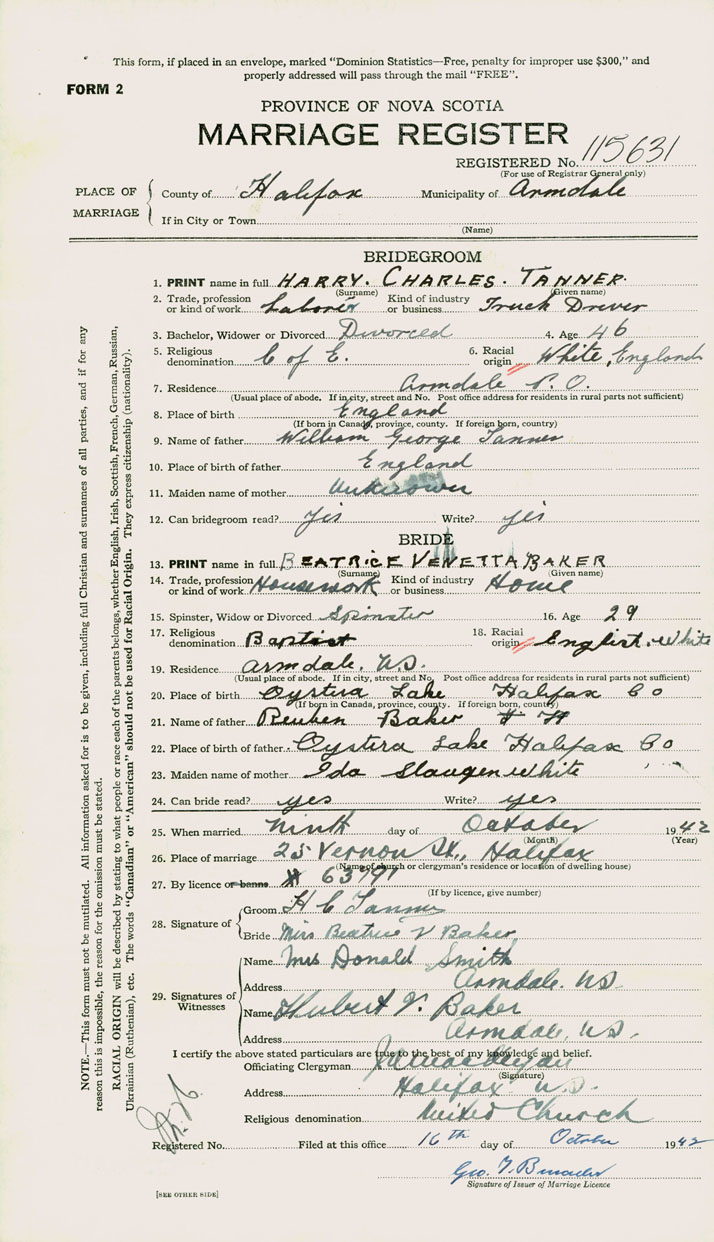 This form, if placed in an envelope, marked "Dominion Statistics—Free, penalty for improper use $300," and
properly addressed will pass through the mail "FREE".
FORM 2
PROVINCE OF NOVA SCOTIA
MARRIAGE REGISTER
REGISTERED No. 115631
(For use of Registrar General only)
PLACE OF MARRIAGE
County of Halifax Municipality of Armdale
If in City or Town
(Name)
BRIDEGROOM
1. PRINT name in full HARRY. CHARLES. TANNER.
(Surname) (Given name)
2. Trade, profession or kind of work Laborer Kind of industry or business Truck Driver
3. Bachelor, Widower or Divorced Divorced 4. Age 46
5. Religious denomination C of E. 6. Racial origin White, England
7. Residence Armdale P.O.
(Usual place of abode. If in city, street and No. Post office address for residents in rural parts not sufficient)
8. Place of birth England
(If born in Canada, province, county. If foreign born, country)
9. Name of father William George Tanner
10. Place of birth of father England
11. Maiden name of mother Unknown
12. Can bridegroom read? yes Write? yes
BRIDE
13. PRINT name in full BEATRICE VENETTA BAKER
(Surname) (Given name)
14. Trade, profession or kind of work Housework Kind of industry or business Home
15. Spinster, Widow or Divorced Spinster 16. Age 29
17. Religious denomination Baptist 18. Racial origin English. White
19. Residence Armdale, N.S.
(Usual place of abode. If in city, street and No. Post office address for residents in rural parts not sufficient)
20. Place of birth Oysters Lake Halifax Co
(If born in Canada, province, county. If foreign born, country)
21. Name of father Reuben Baker
22. Place of birth of father Oysters Lake Halifax Co
23. Maiden name of mother Ida White
24. Can bride read? yes Write? yes
25. When married ninth day of October 1942
(Month) (Year)
26. Place of marriage 25 Vernon St., Halifax
(Name of church or clergyman's residence or location of dwelling house)
27. By licence or banns # 63791
(If by licence, give number)
28. Signature of
Groom H C Tanner
Bride Miss Beatrice V Baker
29. Signatures of Witnesses
Name Mrs Donald Smith
Address Armdale. N.S.
Name Hubert V. Baker
Address Armdale, N.S.
I certify the above stated particulars are true to the best of my knowledge and belief.
Officiating Clergyman
(Signature)
Address Halifax N.S.
Religious denomination United Church
Registered No. Filed at this office 16th day of October 1942
Geo. T.
Signature of Issuer of Marriage Licence
[SEE OTHER SIDE]
NOTE.—This form must not be mutilated. All information asked for is to be given, including full Christian and surnames of all parties, and if for any
reason this is impossible, the reason for the omission must be stated.
RACIAL ORIGIN will be described by stating to what people or race each of the parents belongs, whether English, Irish, Scottish, French, German, Russian,
Ukrainian (Ruthenian), etc. The words "Canadian" or "American" should not be used for Racial Origin. They express citizenship (nationality).